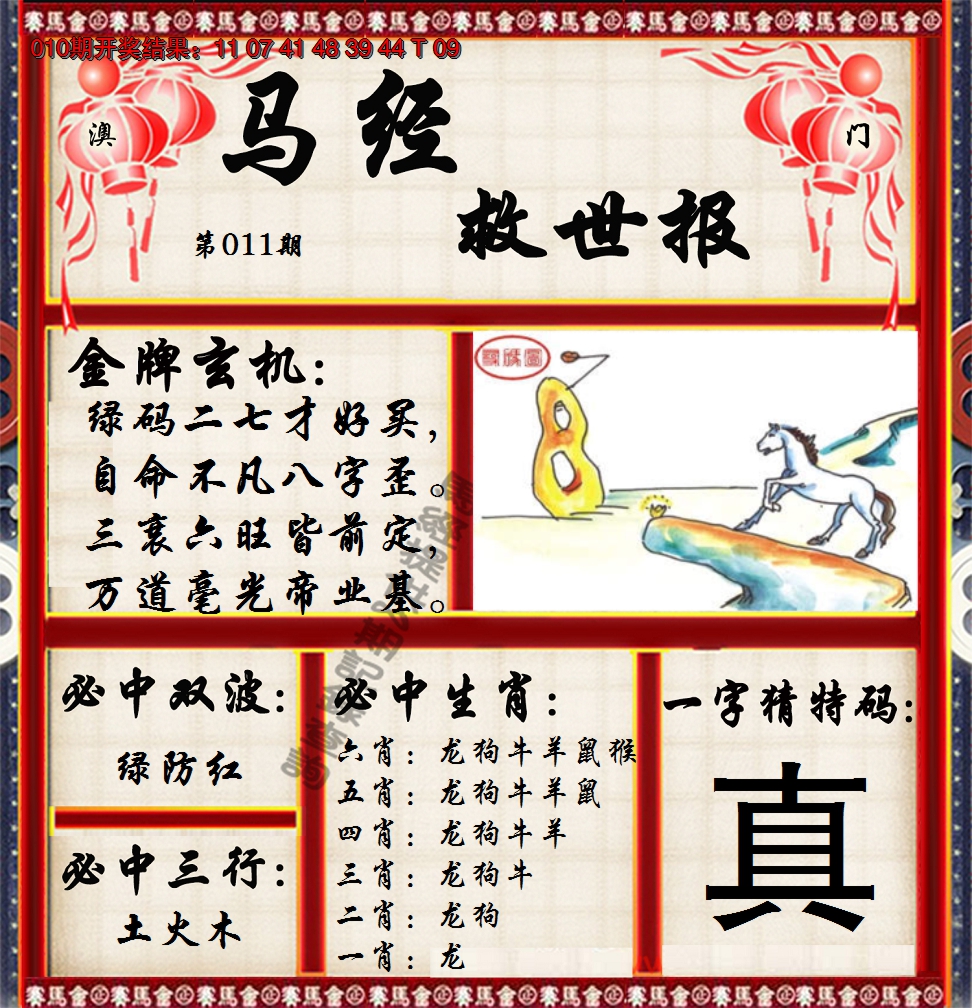 賽馬會 賽馬會 賽馬會 賽馬會 賽馬會 賽馬會 賽馬會
010期开奖结果：11 07 41 48 39 44 T 09
澳
门
马经
救世报
第011期
金牌玄机：
绿码二七才好买，
自命不凡八字歪。
三衰六旺皆前定，
万道毫光帝业基。
必中双波：
绿防红
必中三行：
土火木
必中生肖：
六肖：龙狗牛羊鼠猴
五肖：龙狗牛羊鼠
四肖：龙狗牛羊
三肖：龙狗牛
二肖：龙狗
一肖：龙
一字猜特码：
真